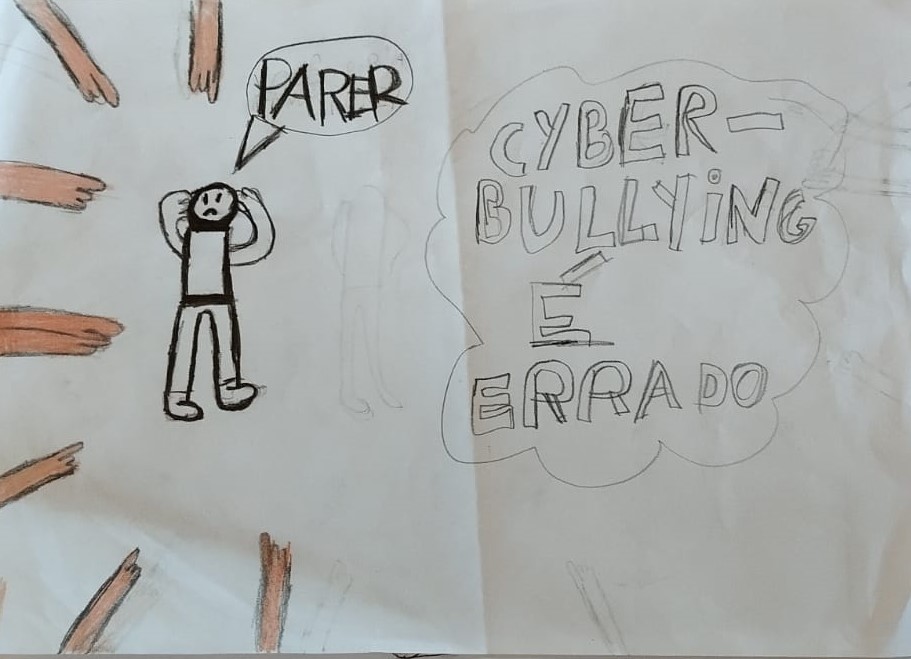 PARER
CYBER-
BULLYiNG
É
ERRADO